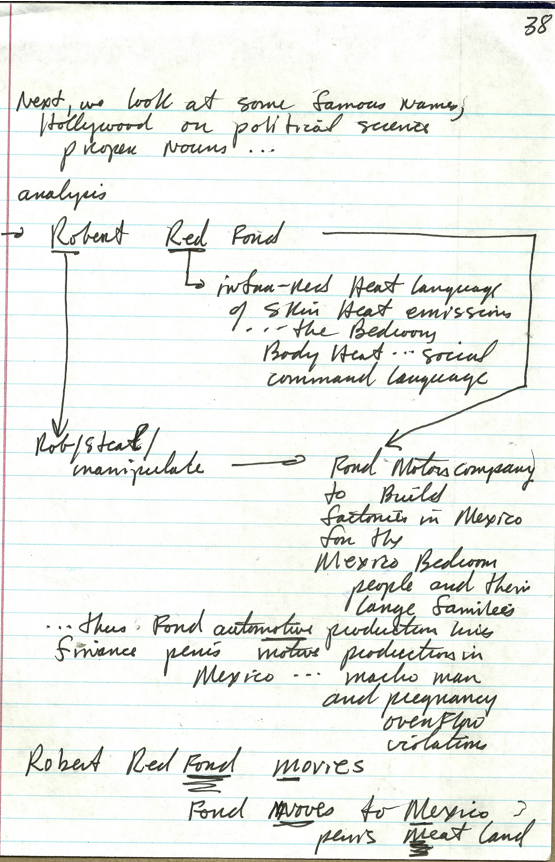 38
Next, we look at some famous names,
Hollywood on political science
proper nouns ...
analysis
→ Robert Red Ford
infra-red Heat language
of skin Heat emissions
... the Bedroom
Body Heat ... social
command language
Rob/steal/
manipulate
Ford Motors company
to Build
factories in Mexico
for the
Mexico Bedroom
people and their
large families
... thus Ford automotive production lines
finance penis motive production in
Mexico ... macho man
and pregnancy
overflow
violations
Robert Red Ford movies
Ford moves to Mexico
penis meat land